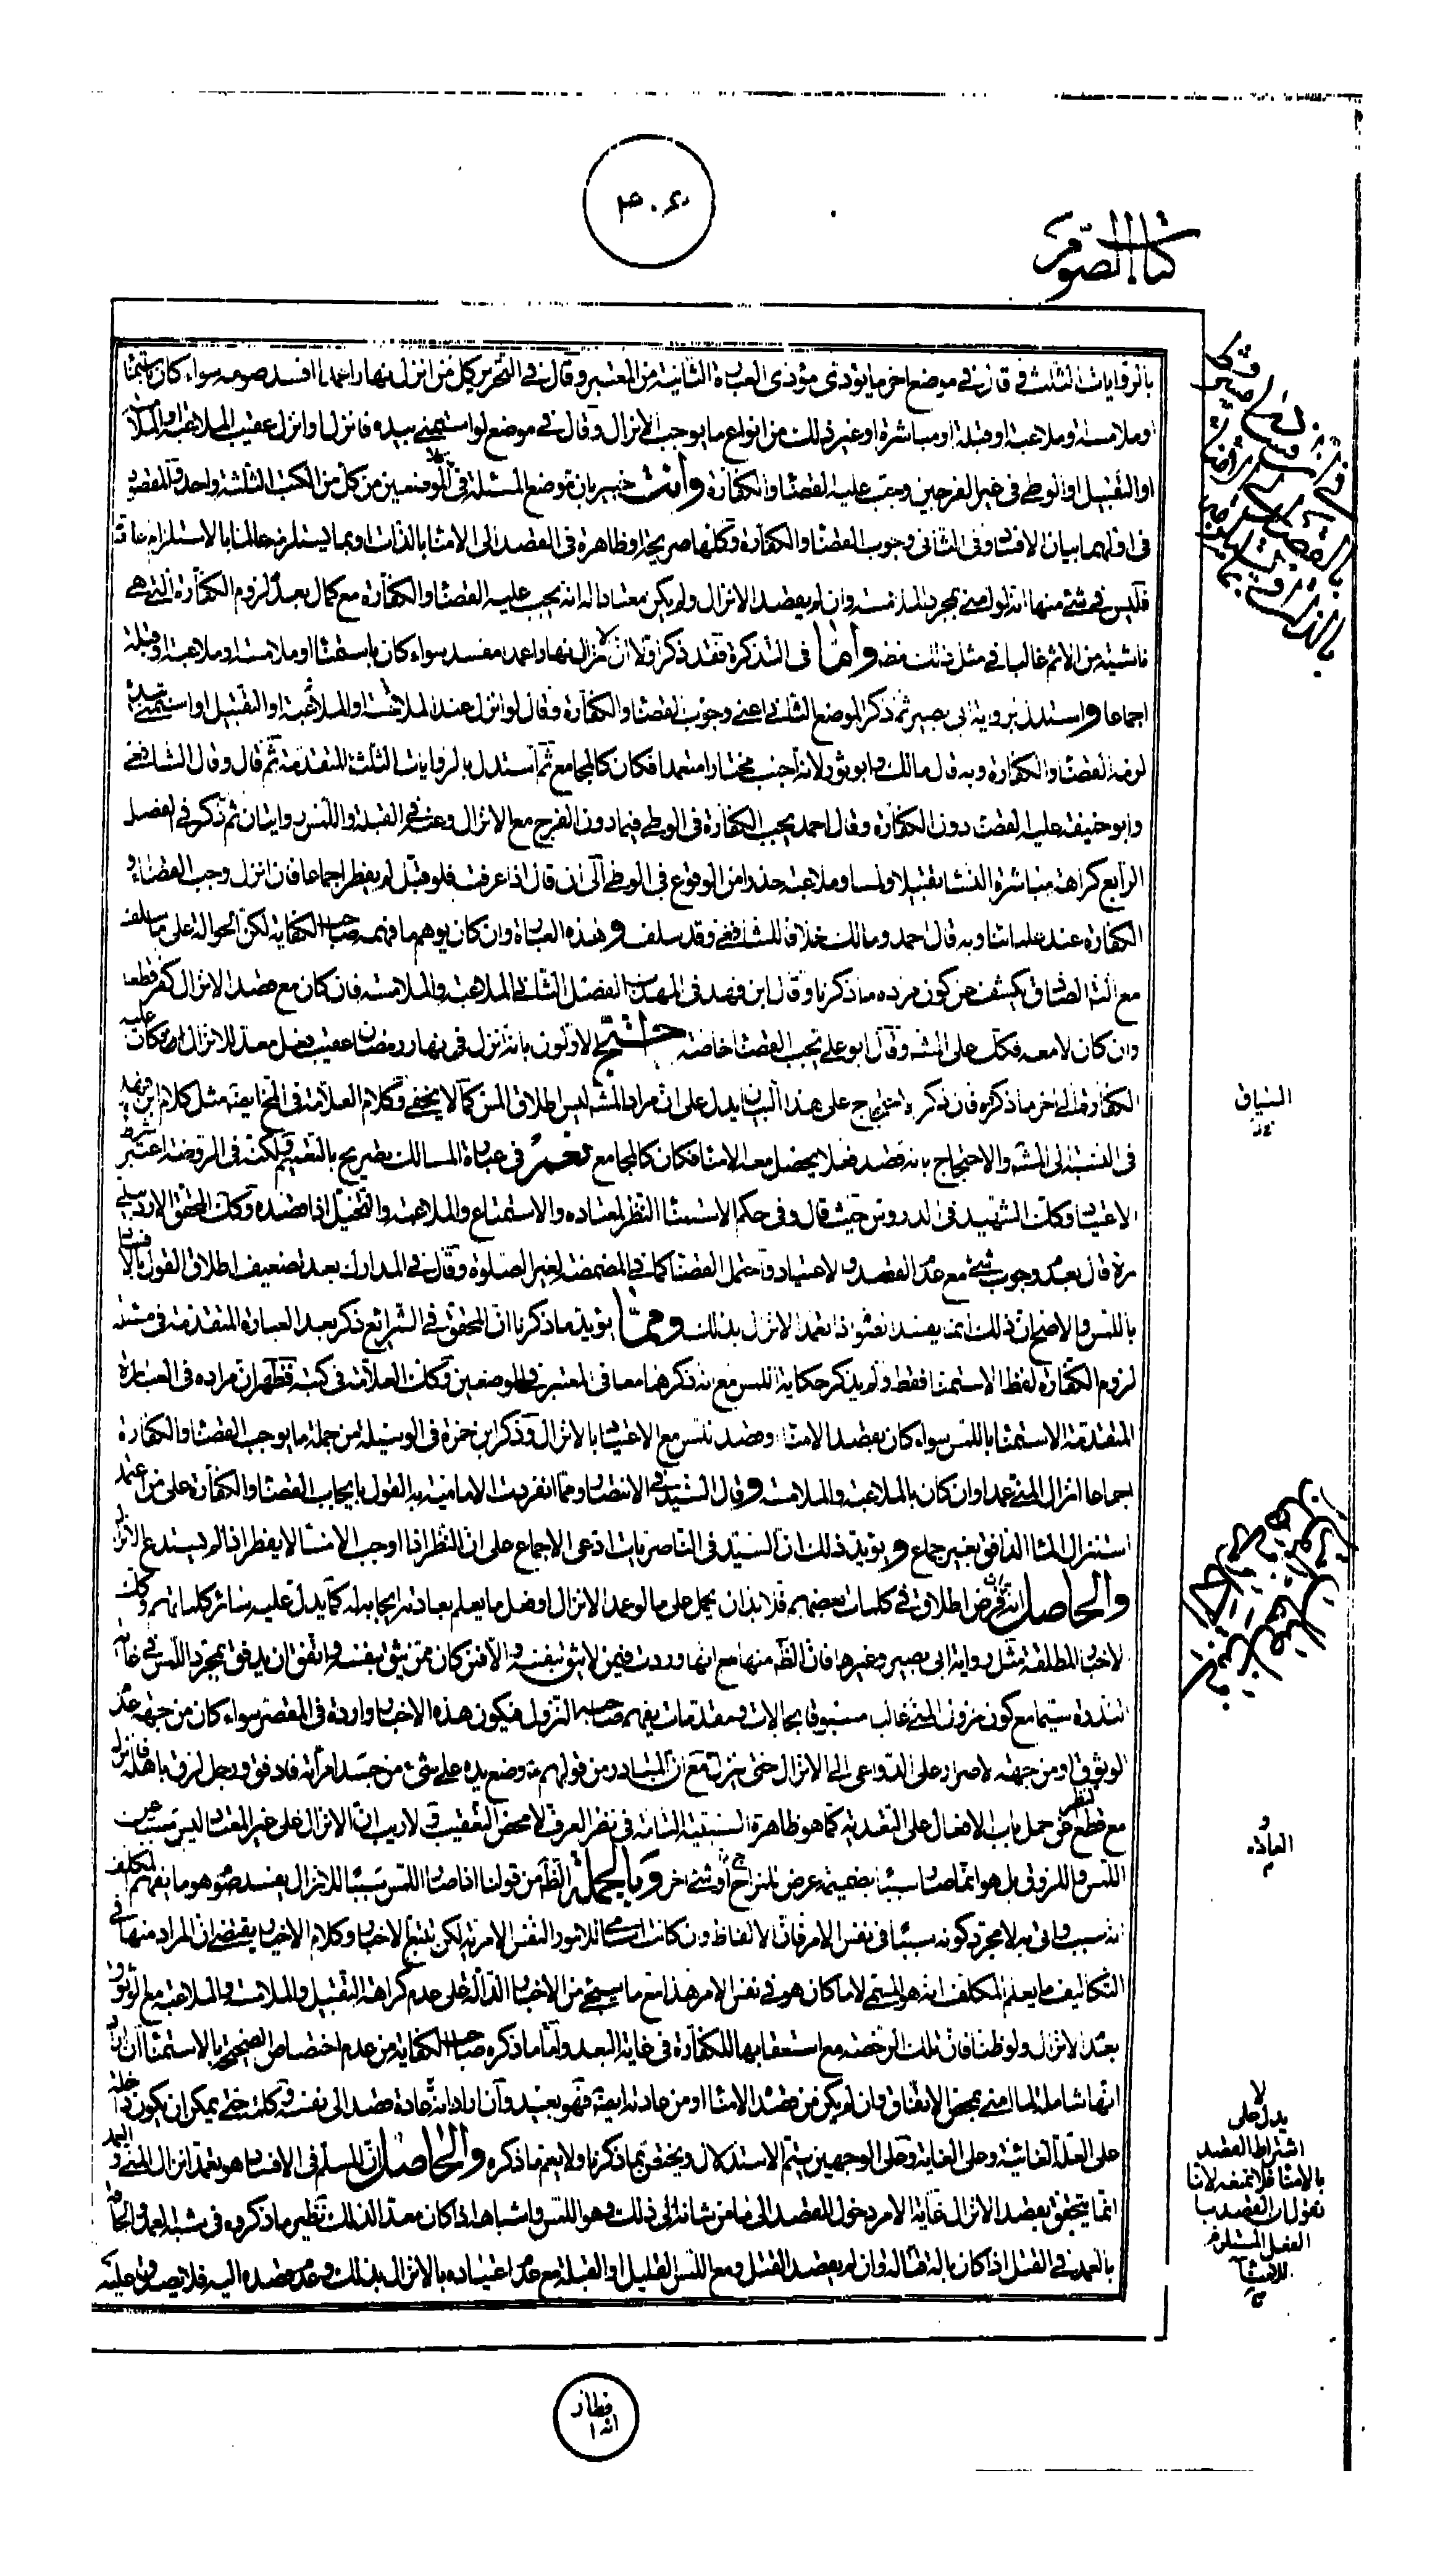 كتاب الصوم
بالروايات الثلث في قال في موضع اخر ما يؤدى مؤدى العبارة الثانية من المعتبر وقال في التحرير كل من انزل نهارا عمدا افسد صومه سواء كان باستمنا
او ملامسة وملاعبة او قبلة او مباشرة او غير ذلك من انواع ما يوجب الانزال وقال في موضع لو استمنى بيده فانزل او انزل عقيب الملاعبة او الملا
او التقبيل او الوطى في غير الفرجين وجب عليه القضا والكفارة وانت خبير بان موضع المسئلة في الموضعين من كل من الكتب الثلثة واحد والمقصود
في اولهما بيان الافساد وفى الثانى وجوب القضا والكفارة وكلها صريحة او ظاهرة في القصد الى الامنا بالذات او بما يستلزمه غالبا بالاستلزام
فليس في شئ منها انه لو امنى بمجرد الملامسة وان لم يقصد الانزال ولم يكن معتادا له انه يجب عليه القضا والكفارة مع كمال بعد لزوم الكفارة التي هي
ناشئة من الاثم غالبا في مثل ذلك واما في التذكرة فقد ذكر اولا ان الانزال نهارا عمدا مفسد سواء كان باستمنا او ملامسة وملاعبة او قبلة
اجماعا واستدل برواية ابى بصير ثم ذكر الموضع الثانى اعنى وجوب القضا والكفارة وقال لو انزل عند الملامسة او الملاعبة او التقبيل او استمنى بيده
لزمه القضا والكفارة وبه قال مالك وابو ثور لانه اجنب مختارا متعمدا فكان كالمجامع ثم استدل بالروايات الثلث المتقدمة ثم قال وقال الشافعى
وابو حنيفة عليه القضا دون الكفارة وقال احمد يجب الكفارة في الوطى فيما دون الفرج مع الانزال وعنه في القبلة واللمس روايتان ثم ذكر في الفصل
الرابع كراهة مباشرة النسا تقبيلا ولمسا وملاعبة حذرا من الوقوع في الوطى الى ان قال اذا عرفت فلو قبل لم يفطر اجماعا فان انزل وجب القضاء و
الكفارة عند علمائنا وبه قال احمد ومالك خلافا للشافعى وقد سلف وهذه العبارة وان كان يوهم ما فهمه صاحب الكفاية لكن الحوالة على ما سلف
يكشف عن كون مراده ما ذكرنا وقال ابن فهد في المهذب الفصل الثانى الملاعبة والملامسة فان كان مع قصد الانزال كفر قطعا
وان كان لا معه فكك على المشهور وقال ابو على يجب القضا خاصة احتج الاولون بانه انزل في نهار رمضان عقيب فعل معد للانزال فكان عليه
الكفارة الى اخر ما ذكره فان ذكر الاحتجاج على هذا البيان يدل على ان مراد المشهور ليس اطلاق المس كما لا يخفى وكلام العلامة في المخ ايضا مثل كلام ابن فهد
في النسبة الى المشهور والاحتجاج بانه قصد فعلا يحصل معه الامنا فكان كالمجامع نعم في عبارة المسالك تصريح بالتعميم لكنه في الروضة اعتبر
الاعتياد وكك الشهيد في الدروس حيث قال وفى حكم الاستمنا النظر لمعتاده والاستمتاع والملاعبة والتخيل اذا قصده وكك المحقق الاردبيلى
قال بعد وجوب شئ مع عدم القصد والاعتياد واحتمل القضا كما في المضمضة لغير الصلوة وقال في المدارك بعد تضعيف اطلاق القول بالافساد
باللمس والاصح ان ذلك انما يفسد اذا تعمد الانزال بذلك ومما يؤيد ما ذكرنا ان المحقق في الشرايع ذكر بعد العبارة المتقدمة في مسئلة
لزوم الكفارة لفظ الاستمنا فقط ولم يذكر حكاية اللمس مع انه ذكرهما معا في المعتبر في الموضعين وكك العلامة في كتبه فظهر ان مراده في العبارة
المتقدمة الاستمنا باللمس سواء كان بقصد الامنا او قصد اللمس مع الاعتياد بالانزال وذكر ابن حمزة في الوسيلة من جملة ما يوجب القضا والكفارة
اجماعا انزال المنى عمدا وان كان بالملاعبة والملامسة وقال السيد في الانتصار ومما انفردت الامامية به القول بايجاب القضا والكفارة على من اعتمد
استنزال الماء الدافق بغير جماع ويؤيد ذلك ان السيد في الناصريات ادعى الاجماع على ان النظر اذا اوجب الامنا لا يفطر اذا لم يستدع الانزال
والحاصل انه فرض اطلاق في كلمات بعضهم فلا بد ان يحمل على ما لو عمد الانزال او فعل ما يعلم بعادته ايجابه له كما يدل عليه ساير كلماتهم وكك
الاخبار المطلقة مثل رواية ابى بصير وغيرها فان الظ منها مع انها وردت فيمن لا يثق بنفسه والا فمن كان ممن يثق بنفسه واتفق ان يدفق بمجرد اللمس في غاية
الندرة سيما مع كون خروج المنى غالبا مسبوقا بحالات ومقدمات يفهم صاحبه النزول فيكون هذه الاخبار واردة في المقصر سواء كان من جهة عدم
الوثوق او من جهة الاصرار على الدواعى الى الانزال حتى ينزل مع ان المتبادر من قولهم وضع يده على شئ من جسد امرأته فادفق ورجل لزق باهله فانزل
مع قطع النظر عن حمل باب الافعال على التعدية كما هو ظاهره السببية التامة في نظر العرف لا محض التعقيب ولا ريب ان الانزال على غير المعتاد ليس مسببا عن
اللمس واللزوق بل هو انما صار سببا بضميمة عرض المزاج او شئ اخر وبالجملة الظ من قولنا اذا صار اللمس سببا للانزال يفسد صومه هو ما يفهم المكلف
انه سبب واتى به لا مجرد كونه سببا في نفس الامر فان الالفاظ وان كانت اسامى للامور النفس الامرية لكن تتبع الاخبار وكلام الاخيار يقتضى ان المراد منها في
التكاليف ما يعلم المكلف انه هو المسمى لا ما كان هو في نفس الامر هذا مع ما سيجئ من الاخبار الدالة على عدم كراهة التقبيل والملامسة والملاعبة مع الوثوق
بعدم الانزال ولو ظنا فان تلك الرخصة مع استعقابها للكفارة في غاية البعد واما ما ذكره صاحب الكفاية من عدم اختصاص الصحيحة بالاستمنا
انها شاملة لما امنى بمحض الاتفاق وان لم يكن من قصده الامنا او من عادته ايضا فهو بعيد وان اراد انه عادة قصد الى نفسه وكلمة حتى يمكن ان يكون
على العلة الغائية وعلى الغاية وعلى الوجهين يتم الاستدلال ويختص بما ذكرنا ولا يعم ما ذكره والحاصل ان المسلم في الافساد هو تعمد انزال المنى و العمد
انما يتحقق بقصد الانزال غاية الامر دخول القصد الى ما من شانه الى ذلك وهو اللمس واشباهه اذا كان معدا لذلك نظير ما ذكروه في شبيه العمد
بالعمد في القتل اذا كان بالة قتالة وان لم يقصد القتل ومع اللمس القليل او القبلة مع عدم اعتياده بالانزال بذلك وعدم قصده اليه فلا يصدق عليه
السياق
العادة
لا يدل على
اشتراط القصد
بالامنا فلا تمنعه لانا
نقول ان القصد ب
الفعل المستلزم
للامنا